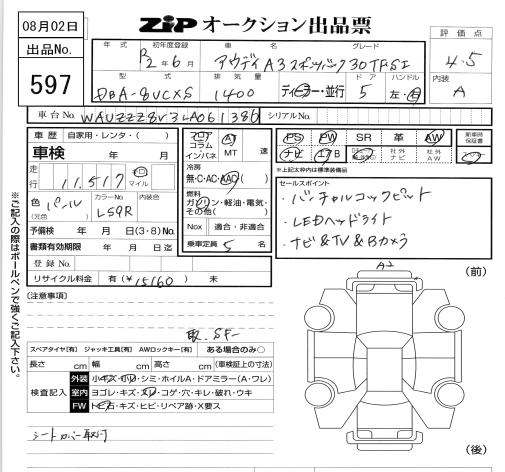 08月02日
ZIP オークション出品票
出品No.
597
年式 初年度登録 車名 グレード
R2年6月 アウディA3スポーツバック30TFSI
型式 排気量 ドア ハンドル
DBA-8VCXS 1400 ディーラー・並行 5 左・右
評価点
4.5
内装
A
車台No. WAUZZZ8V3LA061386 シリアルNo.
車歴 自家用・レンタ・( )
車検 年 月
走行 11,517 キロ マイル
色(元色) パール カラーNo. LS9R 内装色
予備検 年 月 日(3・8)No.
書類有効期限 年 月 日迄
登録No.
リサイクル料金 有(¥15160) 未
フロア コラム インパネ AT MT 速
冷房 無・C・AC・AAC
燃料 ガソリン・軽油・電気・その他( )
Nox 適合・非適合
乗車定員 5 名
PS PW SR 革 AW
ナビ エアB 社外ナビ 社外AW
新車時保証書
※上記太枠内は標準装備品
セールスポイント
・バーチャルコックピット
・LEDヘッドライト
・ナビ&TV&Bカメラ
※ご記入の際はボールペンで強くご記入下さい。
[注意事項]
取.SF-
スペアタイヤ[有] ジャッキ工具[有] AWロックキー[有] ある場合のみ○
長さ cm 幅 cm 高さ cm (車検証上の寸法)
検査記入
外装 小キズ・凹・シミ・ホイルA・ドアミラー(A・ワレ)
室内 ヨゴレ・キズ・スレ・コゲ・穴・キレ・破れ・ウキ
FW トビ石・キズ・ヒビ・リペア跡・X要ス
シートカバー取付
A2
(前)
(後)